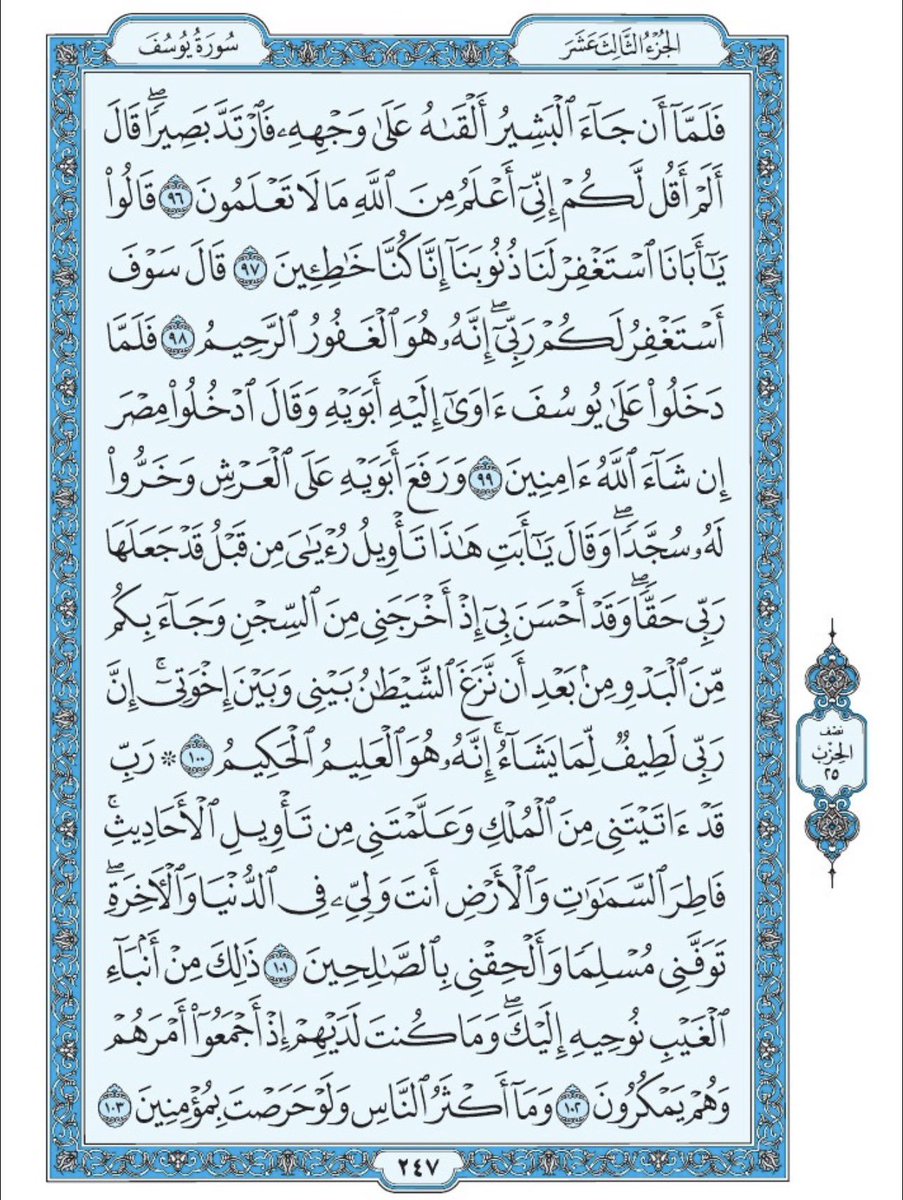 الجُزْءُ الثَّالِثَ عَشَرَ
سُورَةُ يُوسُفَ
فَلَمَّآ أَن جَآءَ ٱلْبَشِيرُ أَلْقَىٰهُ عَلَىٰ وَجْهِهِۦ فَٱرْتَدَّ بَصِيرًاۖ قَالَ
أَلَمْ أَقُل لَّكُمْ إِنِّىٓ أَعْلَمُ مِنَ ٱللَّهِ مَا لَا تَعْلَمُونَ ٩٦ قَالُوا۟
يَـٰٓأَبَانَا ٱسْتَغْفِرْ لَنَا ذُنُوبَنَآ إِنَّا كُنَّا خَـٰطِـِٔينَ ٩٧ قَالَ سَوْفَ
أَسْتَغْفِرُ لَكُمْ رَبِّىٓۖ إِنَّهُۥ هُوَ ٱلْغَفُورُ ٱلرَّحِيمُ ٩٨ فَلَمَّا
دَخَلُوا۟ عَلَىٰ يُوسُفَ ءَاوَىٰٓ إِلَيْهِ أَبَوَيْهِ وَقَالَ ٱدْخُلُوا۟ مِصْرَ
إِن شَآءَ ٱللَّهُ ءَامِنِينَ ٩٩ وَرَفَعَ أَبَوَيْهِ عَلَى ٱلْعَرْشِ وَخَرُّوا۟
لَهُۥ سُجَّدًاۖ وَقَالَ يَـٰٓأَبَتِ هَـٰذَا تَأْوِيلُ رُءْيَـٰىَ مِن قَبْلُ قَدْ جَعَلَهَا
رَبِّى حَقًّاۖ وَقَدْ أَحْسَنَ بِىٓ إِذْ أَخْرَجَنِى مِنَ ٱلسِّجْنِ وَجَآءَ بِكُم
مِّنَ ٱلْبَدْوِ مِنۢ بَعْدِ أَن نَّزَغَ ٱلشَّيْطَـٰنُ بَيْنِى وَبَيْنَ إِخْوَتِىٓۚ إِنَّ
رَبِّى لَطِيفٌ لِّمَا يَشَآءُۚ إِنَّهُۥ هُوَ ٱلْعَلِيمُ ٱلْحَكِيمُ ١٠٠ ۞ رَبِّ
قَدْ ءَاتَيْتَنِى مِنَ ٱلْمُلْكِ وَعَلَّمْتَنِى مِن تَأْوِيلِ ٱلْأَحَادِيثِۚ
فَاطِرَ ٱلسَّمَـٰوَٰتِ وَٱلْأَرْضِ أَنتَ وَلِىِّۦ فِى ٱلدُّنْيَا وَٱلْـَٔاخِرَةِۖ
تَوَفَّنِى مُسْلِمًا وَأَلْحِقْنِى بِٱلصَّـٰلِحِينَ ١٠١ ذَٰلِكَ مِنْ أَنۢبَآءِ
ٱلْغَيْبِ نُوحِيهِ إِلَيْكَۖ وَمَا كُنتَ لَدَيْهِمْ إِذْ أَجْمَعُوٓا۟ أَمْرَهُمْ
وَهُمْ يَمْكُرُونَ ١٠٢ وَمَآ أَكْثَرُ ٱلنَّاسِ وَلَوْ حَرَصْتَ بِمُؤْمِنِينَ ١٠٣
نصف
الحزب
٢٥
٢٤٧